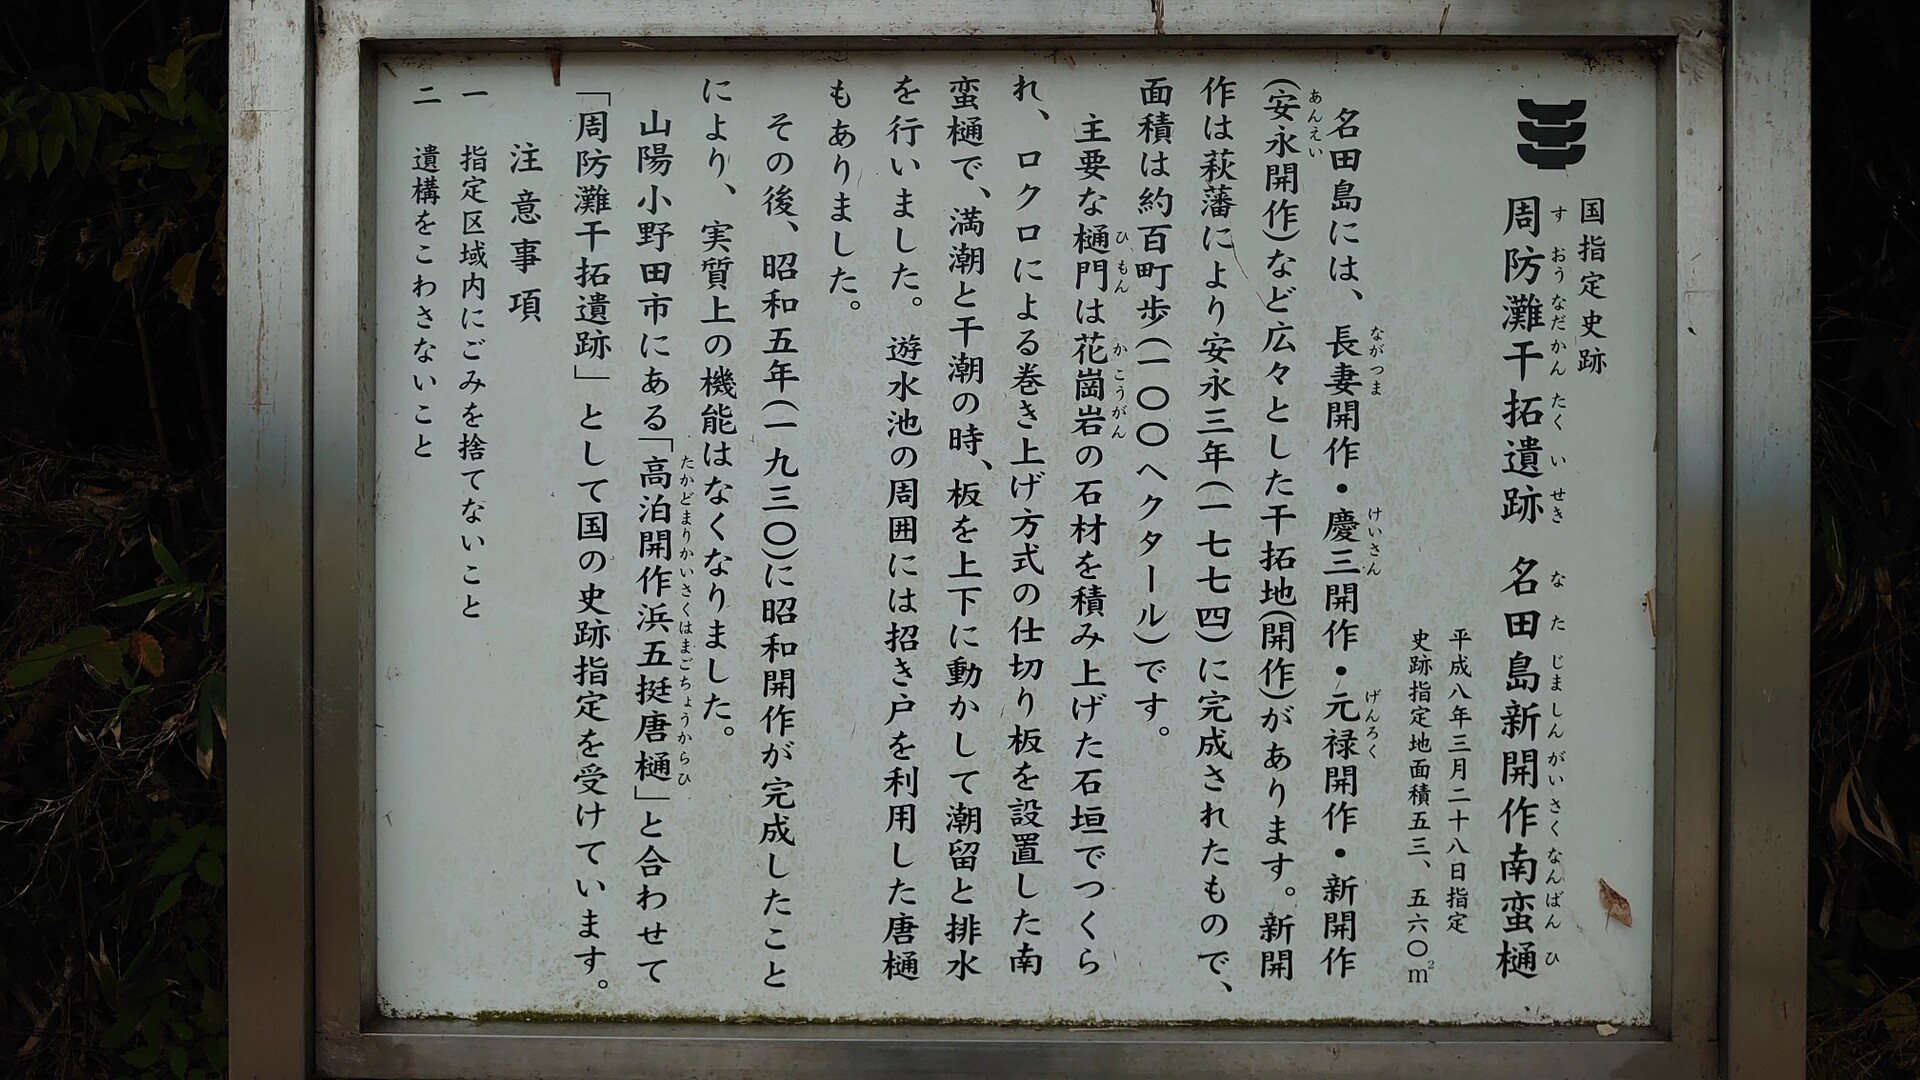 国指定史跡
周防灘干拓遺跡　名田島新開作南蛮樋
すおうなだかんたくいせき　なたじましんがいさくなんばんひ
平成八年三月二十八日指定
史跡指定地面積五三、五六〇㎡
名田島には、長妻開作・慶三開作・元禄開作・新開作
ながつま　けいさん　げんろく
(安永開作)など広々とした干拓地(開作)があります。新開
あんえい
作は萩藩により安永三年(一七七四)に完成されたもので、
面積は約百町歩(一〇〇ヘクタール)です。
主要な樋門は花崗岩の石材を積み上げた石垣でつくら
ひもん　かこうがん
れ、ロクロによる巻き上げ方式の仕切り板を設置した南
蛮樋で、満潮と干潮の時、板を上下に動かして潮留と排水
を行いました。遊水池の周囲には招き戸を利用した唐樋
もありました。
その後、昭和五年(一九三〇)に昭和開作が完成したこと
により、実質上の機能はなくなりました。
山陽小野田市にある「高泊開作浜五挺唐樋」と合わせて
たかどまりかいさくはまごちょうからひ
「周防灘干拓遺跡」として国の史跡指定を受けています。
注意事項
一　指定区域内にごみを捨てないこと
二　遺構をこわさないこと